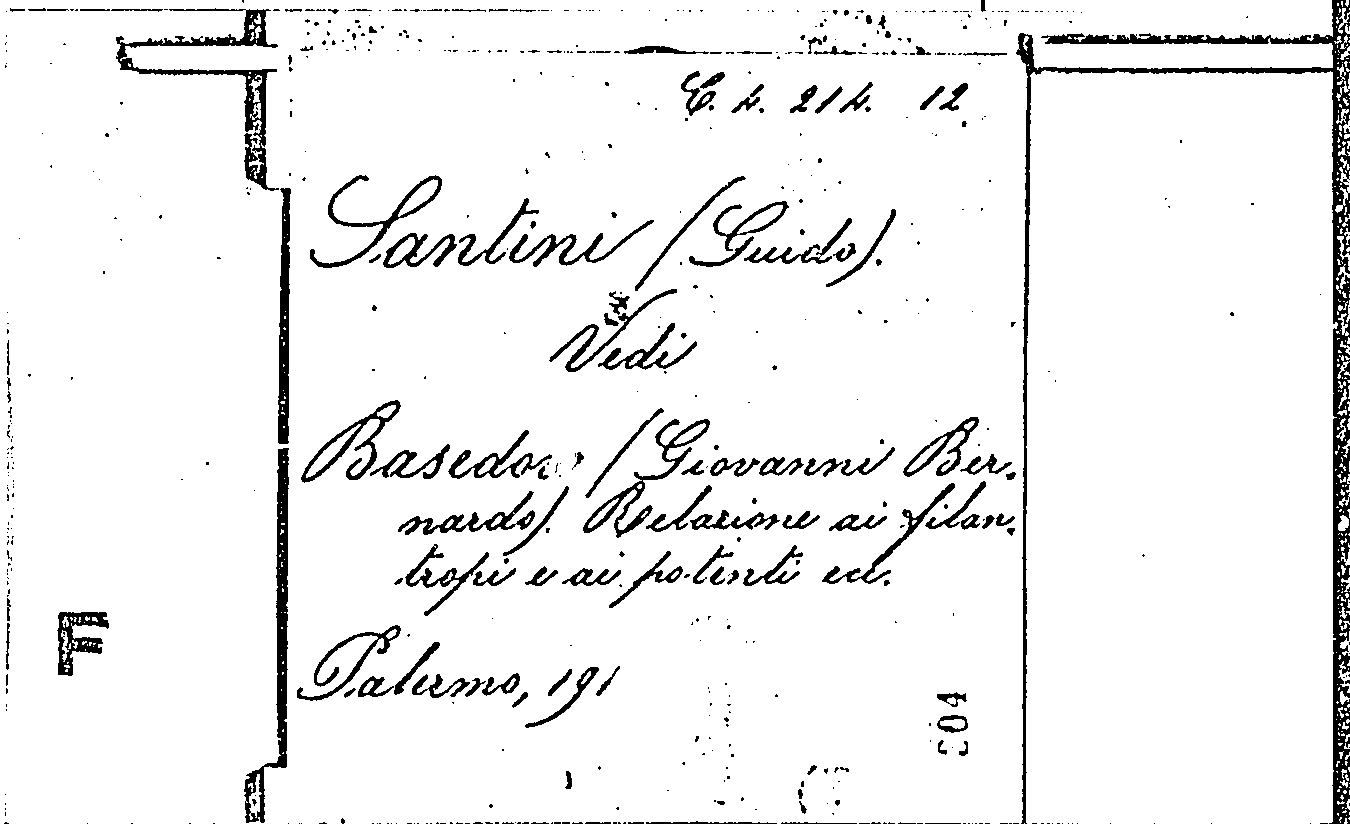 C. 4. 214. 12
Santini (Guido).
Vedi
Basedow (Giovanni Ber-
nardo). Relazione ai filan-
tropi e ai potenti ecc.
Palermo, 191
F